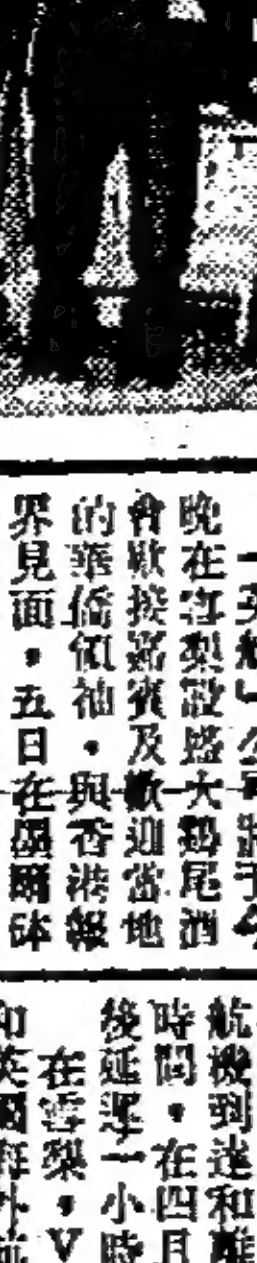 晚在雪梨設盛大雞尾酒
會歡接嘉賓及歡迎當地
的華僑領袖，與香港報
界見面，五日在墨爾砵
航機到達和離
時間，在四月
後延遲一小時
在雪梨，V
和英國海外航